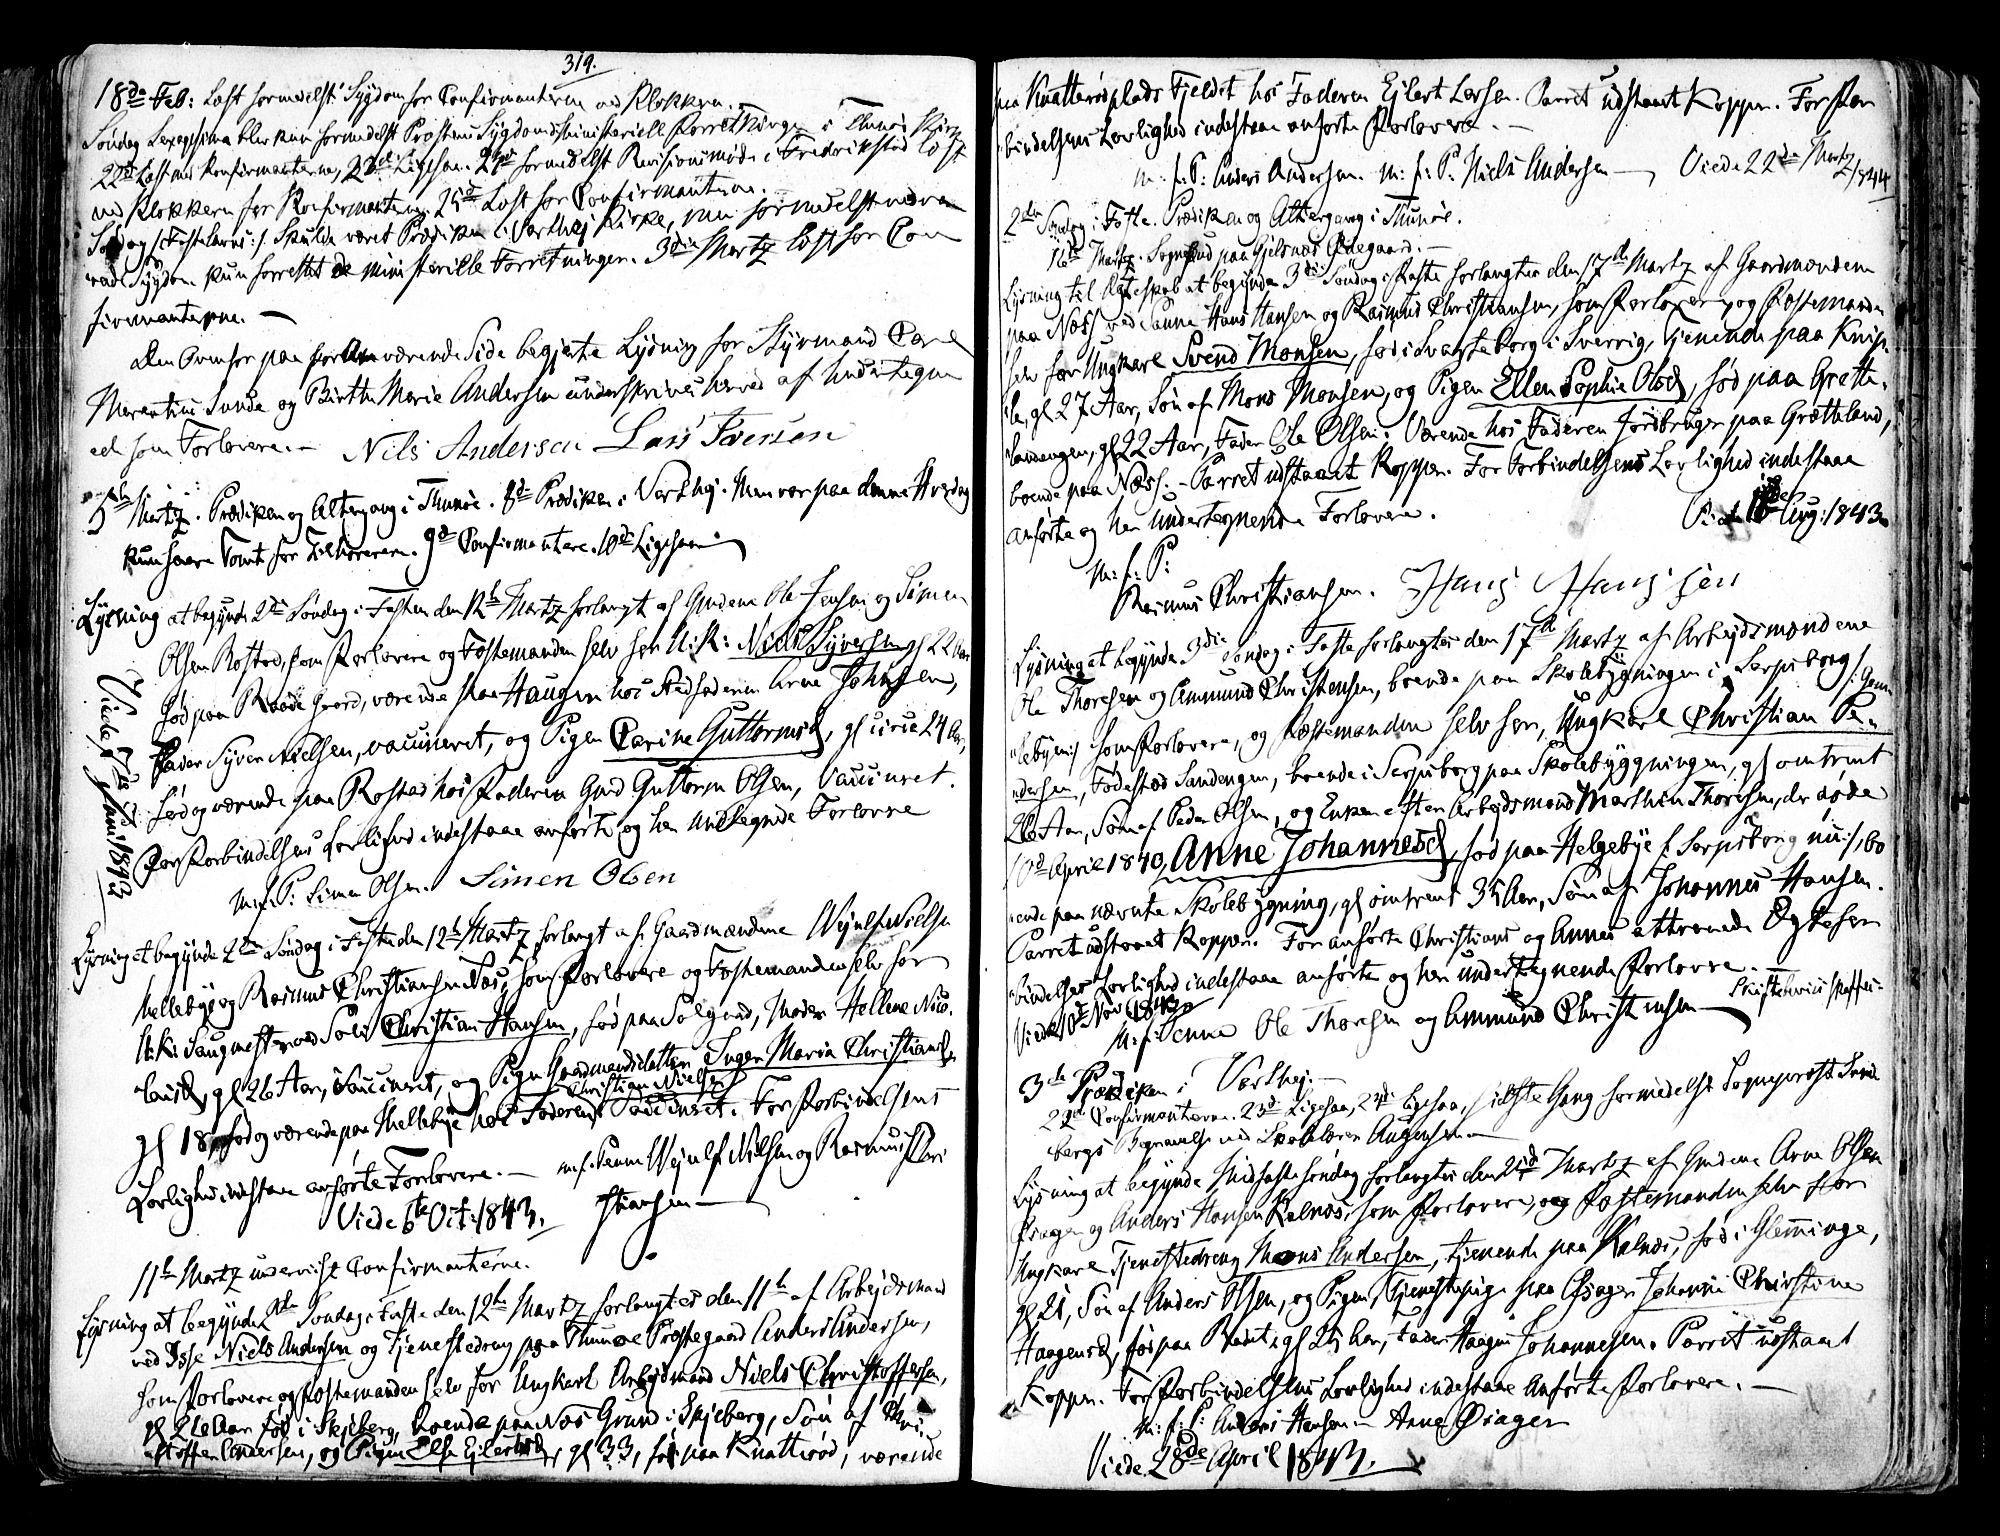 319.
18de Feb: Læst formedelst Sygdom for Confirmanterne ved Klokkeren.
Søndag Sexagesima blev kun formedelst Præstens Sygdom Ministeriell Forretninger i Thunøe Kirke
22d Læst med Konfirmanterne, 23d Ligesaa. 24d formedelst Revisionsmøde i Fredrikstad læst
ved Klokkeren for Konfirmanterne. 25d Læst for Confirmanterne.
Søndag /: Fastelavns :/ skulde været Prædiken i Varthej Kirke, men formedelst
Sygdom kun forrettet de ministerielle Forretninger. 3die Martz læst for Con
firmanterne. —
Den ovenfor paa værende Side begjerte Lysning for Styrmand Carl
Marentius Lunde og Birthe Marie Andersen underskrives herved af Undertegn
ede som Forlovere. — Nils Andersen Lars Iversen
5th Martz. Prædiken og Altergang i Thunøe. 8de Prædiken i Varthej. Men var paa denne Hverdag
kun for Tilhørerne. 9de Confirmantere. 10de Ligesaa.
Lysning at begynde 2den Søndag i Fasten den 12th Martz forlangt af Gmdene Ole Jensen og Simen
Olsen Rostad, som Forlovere og Fæstemanden selv for U: K: Niels Syversen gl 22 Aar
Fød paa Raade Gaard, værende paa Haugen hos Stedfaderen Arne Johnsen,
Fader Syver Nielsen, vaccineret, og Pigen Carine Guttormsd, gl circa 24 Aar,
Fød og værende paa Rostad hos Faderen Gmd Guttorm Olsen, vaccineret.
For Forbindelsens Lovlighed indestaae anførte og her Undertegnede Forlovere
m. f. P: Simen Olsen. Simen Olsen
Viede 7de Juni 1843
Lysning at begynde 2den Søndag i Faste den 12th Martz forlangt af Gaardmændene Wejulf Nielsen
Hellebye og Rasmus Christiansen Næs, som Forlovere og Fæstemanden selv for
U: K: Saugmester ved Soli Christian Hansen, fød paa Solgund, Moder Hellene Nico
laisd, gl 26 Aar, vaccineret, og Pigen Gaardmandsdatter Inger Maria Christiansd
gl 18, fød og værende paa Hellebye hos Faderen Christian Nielsen vaccineret. For Forbindelsens
Lovlighed indestaae anførte Forlovere. — m. f. Penne Wejulf Nielsen og Rasmus Chri
Viede 6te Oct: 1843. stiansen —
11th Martz undervist Confirmanterne.
Lysning at begynde 2den Søndag i Faste den 12th Martz forlangtes den 11th af Arbejdsmand
ved Isse Niels Andersen og Tjenestedreng paa Thunøe Præstegaard Anders Andersen,
som Forlovere og Fæstemanden selv for Ungkarl Arbejdsmand Niels Christoffersen,
gl 26 Aar fød i Skjeberg, boende paa Næs Grund i Skjeberg, Søn af Chri
stoffer Andersen, og Pigen Else Ejlertsd, gl 33, fød paa Knatterød, værende
paa Knatterødplads Fjeldet hos Faderen Ejlert Larsen. Parret udstaaet Kopper. For For
bindelsens Lovlighed indestaae anførte Forlovere. —
m: f: P: Anders Andersen. m: f: P: Niels Andersen — Viede 22de Martz 1844
2den Søndag i Faste. Prædiken og Altergang i Thunøe.
16th Martz. Sognebud paa Gjelsnes Ødegaard. —
Lysning til Ægteskab at begynde 3die Søndag i Faste forlangtes den 17de Martz af Gaardmændene
paa Næss ved Sanne Hans Hansen og Rasmus Christiansen, som Forlovere, og Fæstemanden
selv for Ungkarl Svend Monsen, fød i Svarteborg i Sverrig, tjenende paa Knip
le, gl 27 Aar, Søn af Mons Monsen, og Pigen Ellen Sophie Olsd, fød paa Grette
landengen, gl 22 Aar, Fader Ole Olsen. Værende hos Faderen Jordbruger paa Grætteland,
boende paa Næss. — Parret udstaaet Kopper. For Forbindelsens Lovlighed indestaae
anførte og her Undertegnende Forlovere. Viede Aug: 1843
m: f: P:
Rasmus Christiansen. Hans Hansen
Lysning at begynde 3die Søndag i Faste forlangtes den 17d Martz af Arbejdsmændene
Ole Thoresen og Ammund Christensen, boende paa Skolebygningen i Sarpsborg /: Gam
lebyen:/ som Forlovere, og Fæstemanden selv for, Ungkarl Christian Pe
dersen, Fødested Sandengen, boende i Sarpsborg paa Skolebyggningen, gl omtrent
26 Aar, Søn af Peder Olsen, og Enken efter Arbejdsmand Mathis Thoresen, der døde
10d April 1840, Anne Johannesd, fød paa Helgebye /: Sarpsborg nu:/, bo
ende paa nævnte Skolebygning, gl omtrent 35 Aar, Søn af Johannes Hansen.
Parret udstaaet Kopper. For anførte Christians og Annes attraaede Ægtefor
bindelses Lovlighed indestaae anførte og her undertegnende Forlovere. —
Viede 10d Nov: 1843 m. f. Penne Ole Thoresen og Ammund Christensen — Skiftebeviis skaffes
3th Prædiken i Varthej. —
22d Confirmanterne. 23d Ligesaa, 24d Ligesaa, sidste Gang formedelst Sogneprest
bergs Begravelse ved Skolelærer Augensen —
Lysning at begynde Midfaste Søndag forlangtes den 25d Martz af Gmdene Arne Olsen
Øsagen og Anders Hansen Kalnæs, som Forlovere, og Fæstemanden selv for
Ungkarl Tjenestedreng Mons Andersen, tjenende paa Kalnæs, fød i Glemminge,
gl 21, Søn af Anders Olsen, og Pigen, Tjenestepige paa Øsagen Johanne Christine
Haagensd, fød paa gl 25 Aar, Fader Haagen Johannesen. Parret udstaaet
Kopper. For Forbindelsens Lovlighed indestaae Anførte Forlovere. —
m: f: P: Anders Hansen — Arne Øsagen
Viede 28de April 1843.